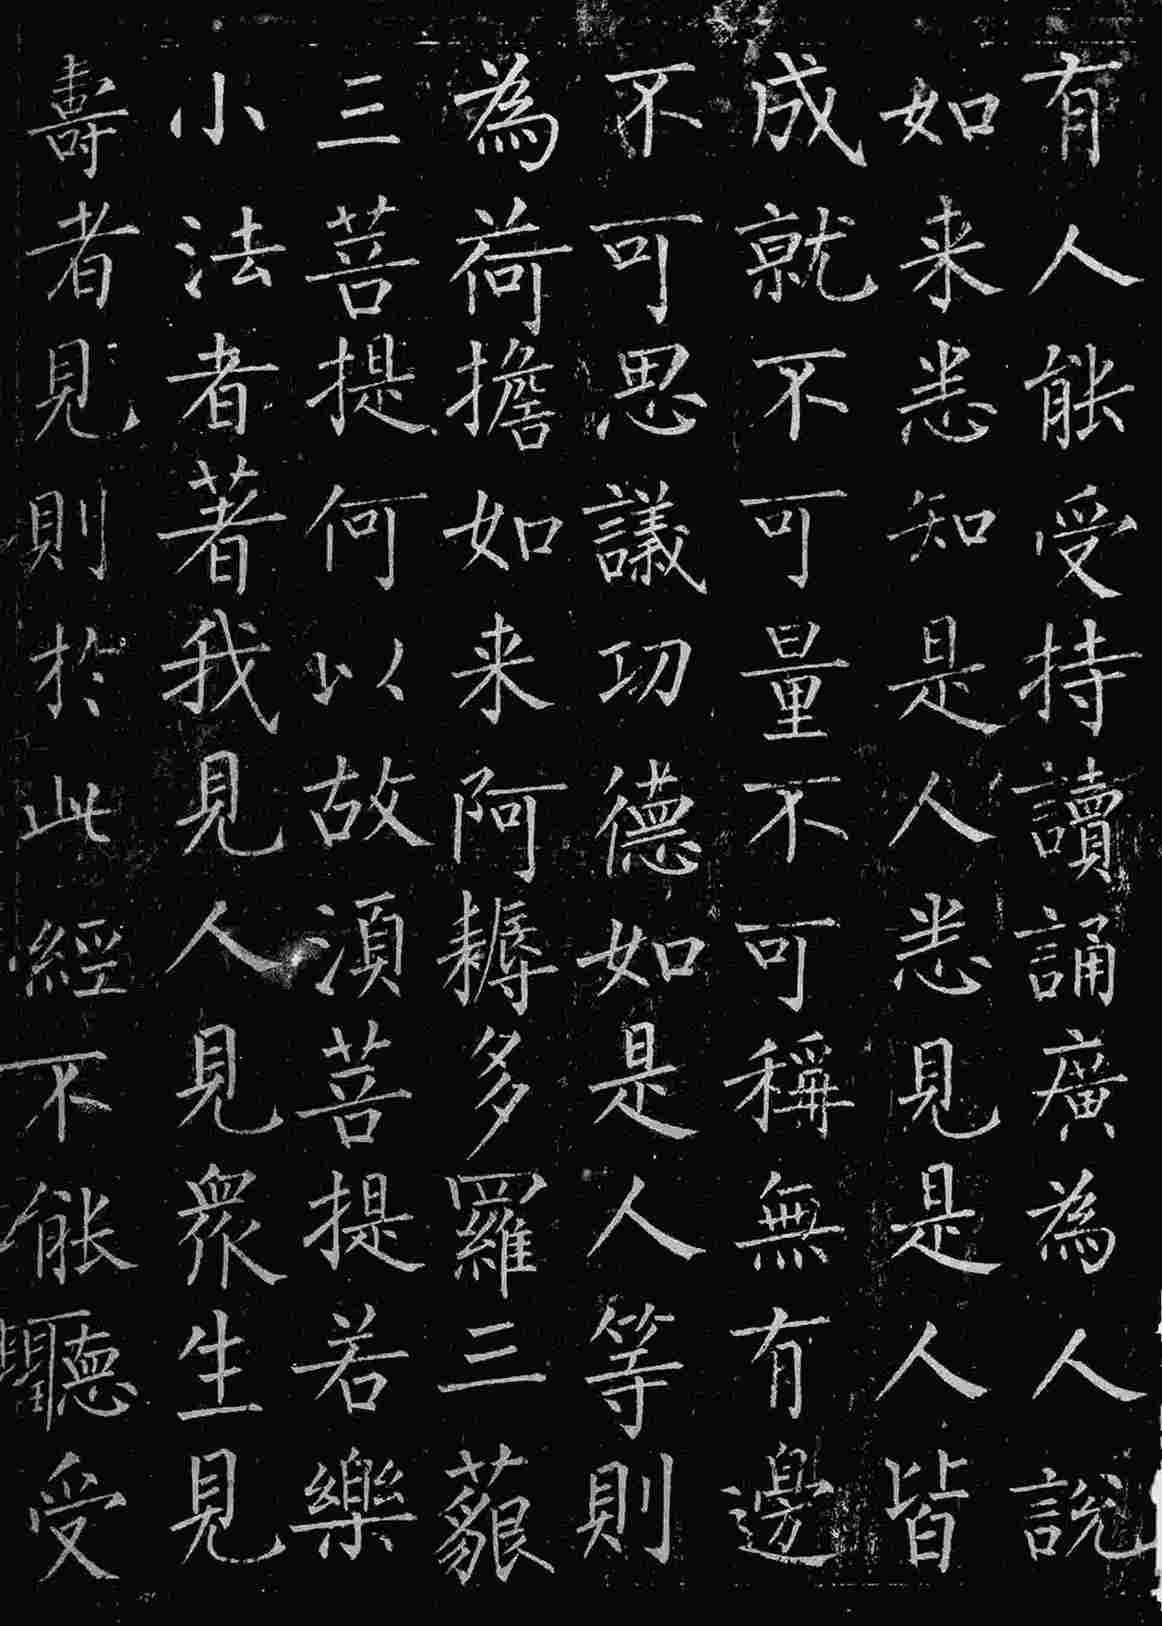 有人能受持讀誦廣為人說
如来悉知是人悉見是人皆
成就不可量不可稱無有邊
不可思議功德如是人等則
為荷擔如来阿耨多羅三藐
三菩提何以故湏菩提若樂
小法者著我見人見衆生見
壽者見則於此經不能聽受